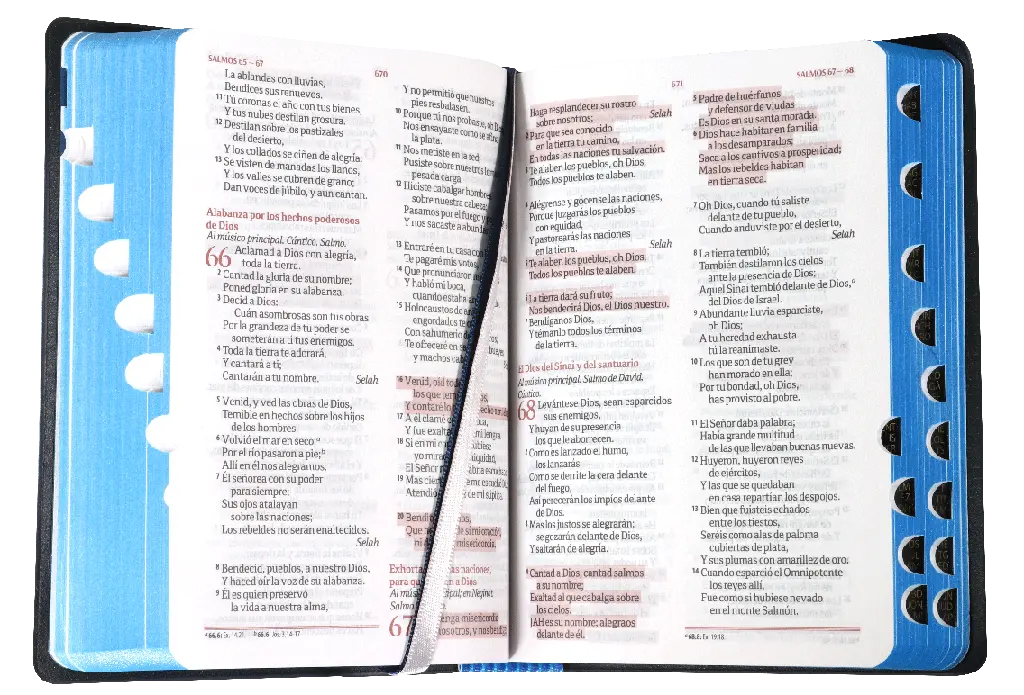 SALMOS 65—67
670
La ablandas con lluvias,
Bendices sus renuevos.
11 Tú coronas el año con tus bienes,
Y tus nubes destilan grosura.
12 Destilan sobre los pastizales
del desierto,
Y los collados se ciñen de alegría.
13 Se visten de manadas los llanos,
Y los valles se cubren de grano;
Dan voces de júbilo, y aun cantan.
Alabanza por los hechos poderosos
de Dios
Al músico principal. Cántico. Salmo.
66 Aclamad a Dios con alegría,
toda la tierra.
2 Cantad la gloria de su nombre;
Poned gloria en su alabanza.
3 Decid a Dios:
Cuán asombrosas son tus obras
Por la grandeza de tu poder se
someterán a ti tus enemigos.
4 Toda la tierra te adorará,
Y cantará a ti;
Cantarán a tu nombre. Selah
5 Venid, y ved las obras de Dios,
Temible en hechos sobre los hijos
de los hombres.
6 Volvió el mar en seco;a
Por el río pasaron a pie;b
Allí en él nos alegramos.
7 Él señorea con su poder
para siempre;
Sus ojos atalayan
sobre las naciones;
Los rebeldes no serán enaltecidos.
Selah
8 Bendecid, pueblos, a nuestro Dios,
Y haced oír la voz de su alabanza.
9 Él es quien preservó
la vida a nuestra alma,
a 66.6: Ex. 14.21. b 66.6: Jos. 3.14-17.
Y no permitió que nuestros
pies resbalasen.
10 Porque tú nos probaste, oh
Nos ensayaste como se
la plata.
11 Nos metiste en la red
Pusiste sobre nuestros
pesada carga.
12 Hiciste cabalgar hombres
sobre nuestra cabeza;
Pasamos por el fuego y
Y nos sacaste a
13 Entraré en tu casa con
Te pagaré mis votos,
14 Que pronunciaron
Y habló mi boca,
cuando estaba
15 Holocaustos de
engordados te
Con sahumerio de
Te ofreceré en
y machos
16 Venid, oíd
los que
Y contaré lo hecho
17 A él clamé
Y fue exaltado mi lengua.
18 Si en mi
El Señor no
19 Mas
Atendió de mi súplica.
20 Bendito
Que no de sí mi oración,
ni misericordia.
Exhortación naciones,
para que a Dios
Al músico principal; en Neginot.
Salmo
67 tenga misericordia
nosotros, y nos
671
SALMOS 67—68
Haga resplandecer su rostro
sobre nosotros; Selah
2 Para que sea conocido
en la tierra tu camino,
En todas las naciones tu salvación.
3 Te alaben los pueblos, oh Dios;
Todos los pueblos te alaben.
4 Alégrense y gócense las naciones,
Porque juzgarás los pueblos
con equidad,
Y pastorearás las naciones
en la tierra. Selah
5 Te alaben los pueblos, oh Dios;
Todos los pueblos te alaben.
6 La tierra dará su fruto;
Nos bendecirá Dios, el Dios nuestro.
7 Bendíganos Dios,
Y témanlo todos los términos
de la tierra.
El Dios del Sinaí y del santuario
Al músico principal. Salmo de David.
Cántico.
68 Levántese Dios, sean esparcidos
sus enemigos,
Y huyan de su presencia
los que le aborrecen.
2 Como es lanzado el humo,
los lanzarás
Como se derrite la cera delante
del fuego,
Así perecerán los impíos delante
de Dios.
3 Mas los justos se alegrarán;
se gozarán delante de Dios,
Y saltarán de alegría.
4 Cantad a Dios, cantad salmos
a su nombre;
Exaltad al que cabalga sobre
los cielos.
JAH es su nombre; alegraos
delante de él.
5 Padre de huérfanos
y defensor de viudas
Es Dios en su santa morada.
6 Dios hace habitar en familia
a los desamparados;
Saca a los cautivos a prosperidad;
Mas los rebeldes habitan
en tierra seca.
7 Oh Dios, cuando tú saliste
delante de tu pueblo,
Cuando anduviste por el desierto,
Selah
8 La tierra tembló;
También destilaron los cielos
ante la presencia de Dios;
Aquel Sinaí tembló delante de Dios,a
del Dios de Israel.
9 Abundante lluvia esparciste,
oh Dios;
A tu heredad exhausta
tú la reanimaste.
10 Los que son de tu grey
han morado en ella;
Por tu bondad, oh Dios,
has provisto al pobre.
11 El Señor daba palabra;
Había grande multitud
de las que llevaban buenas nuevas.
12 Huyeron, huyeron reyes
de ejércitos,
Y las que se quedaban
en casa repartían los despojos.
13 Bien que fuisteis echados
entre los tiestos,
Seréis como alas de paloma
cubiertas de plata,
Y sus plumas con amarillez de oro.
14 Cuando esparció el Omnipotente
los reyes allí,
Fue como si hubiese nevado
en el monte Salmón.
a 68.8: Ex. 19.18.